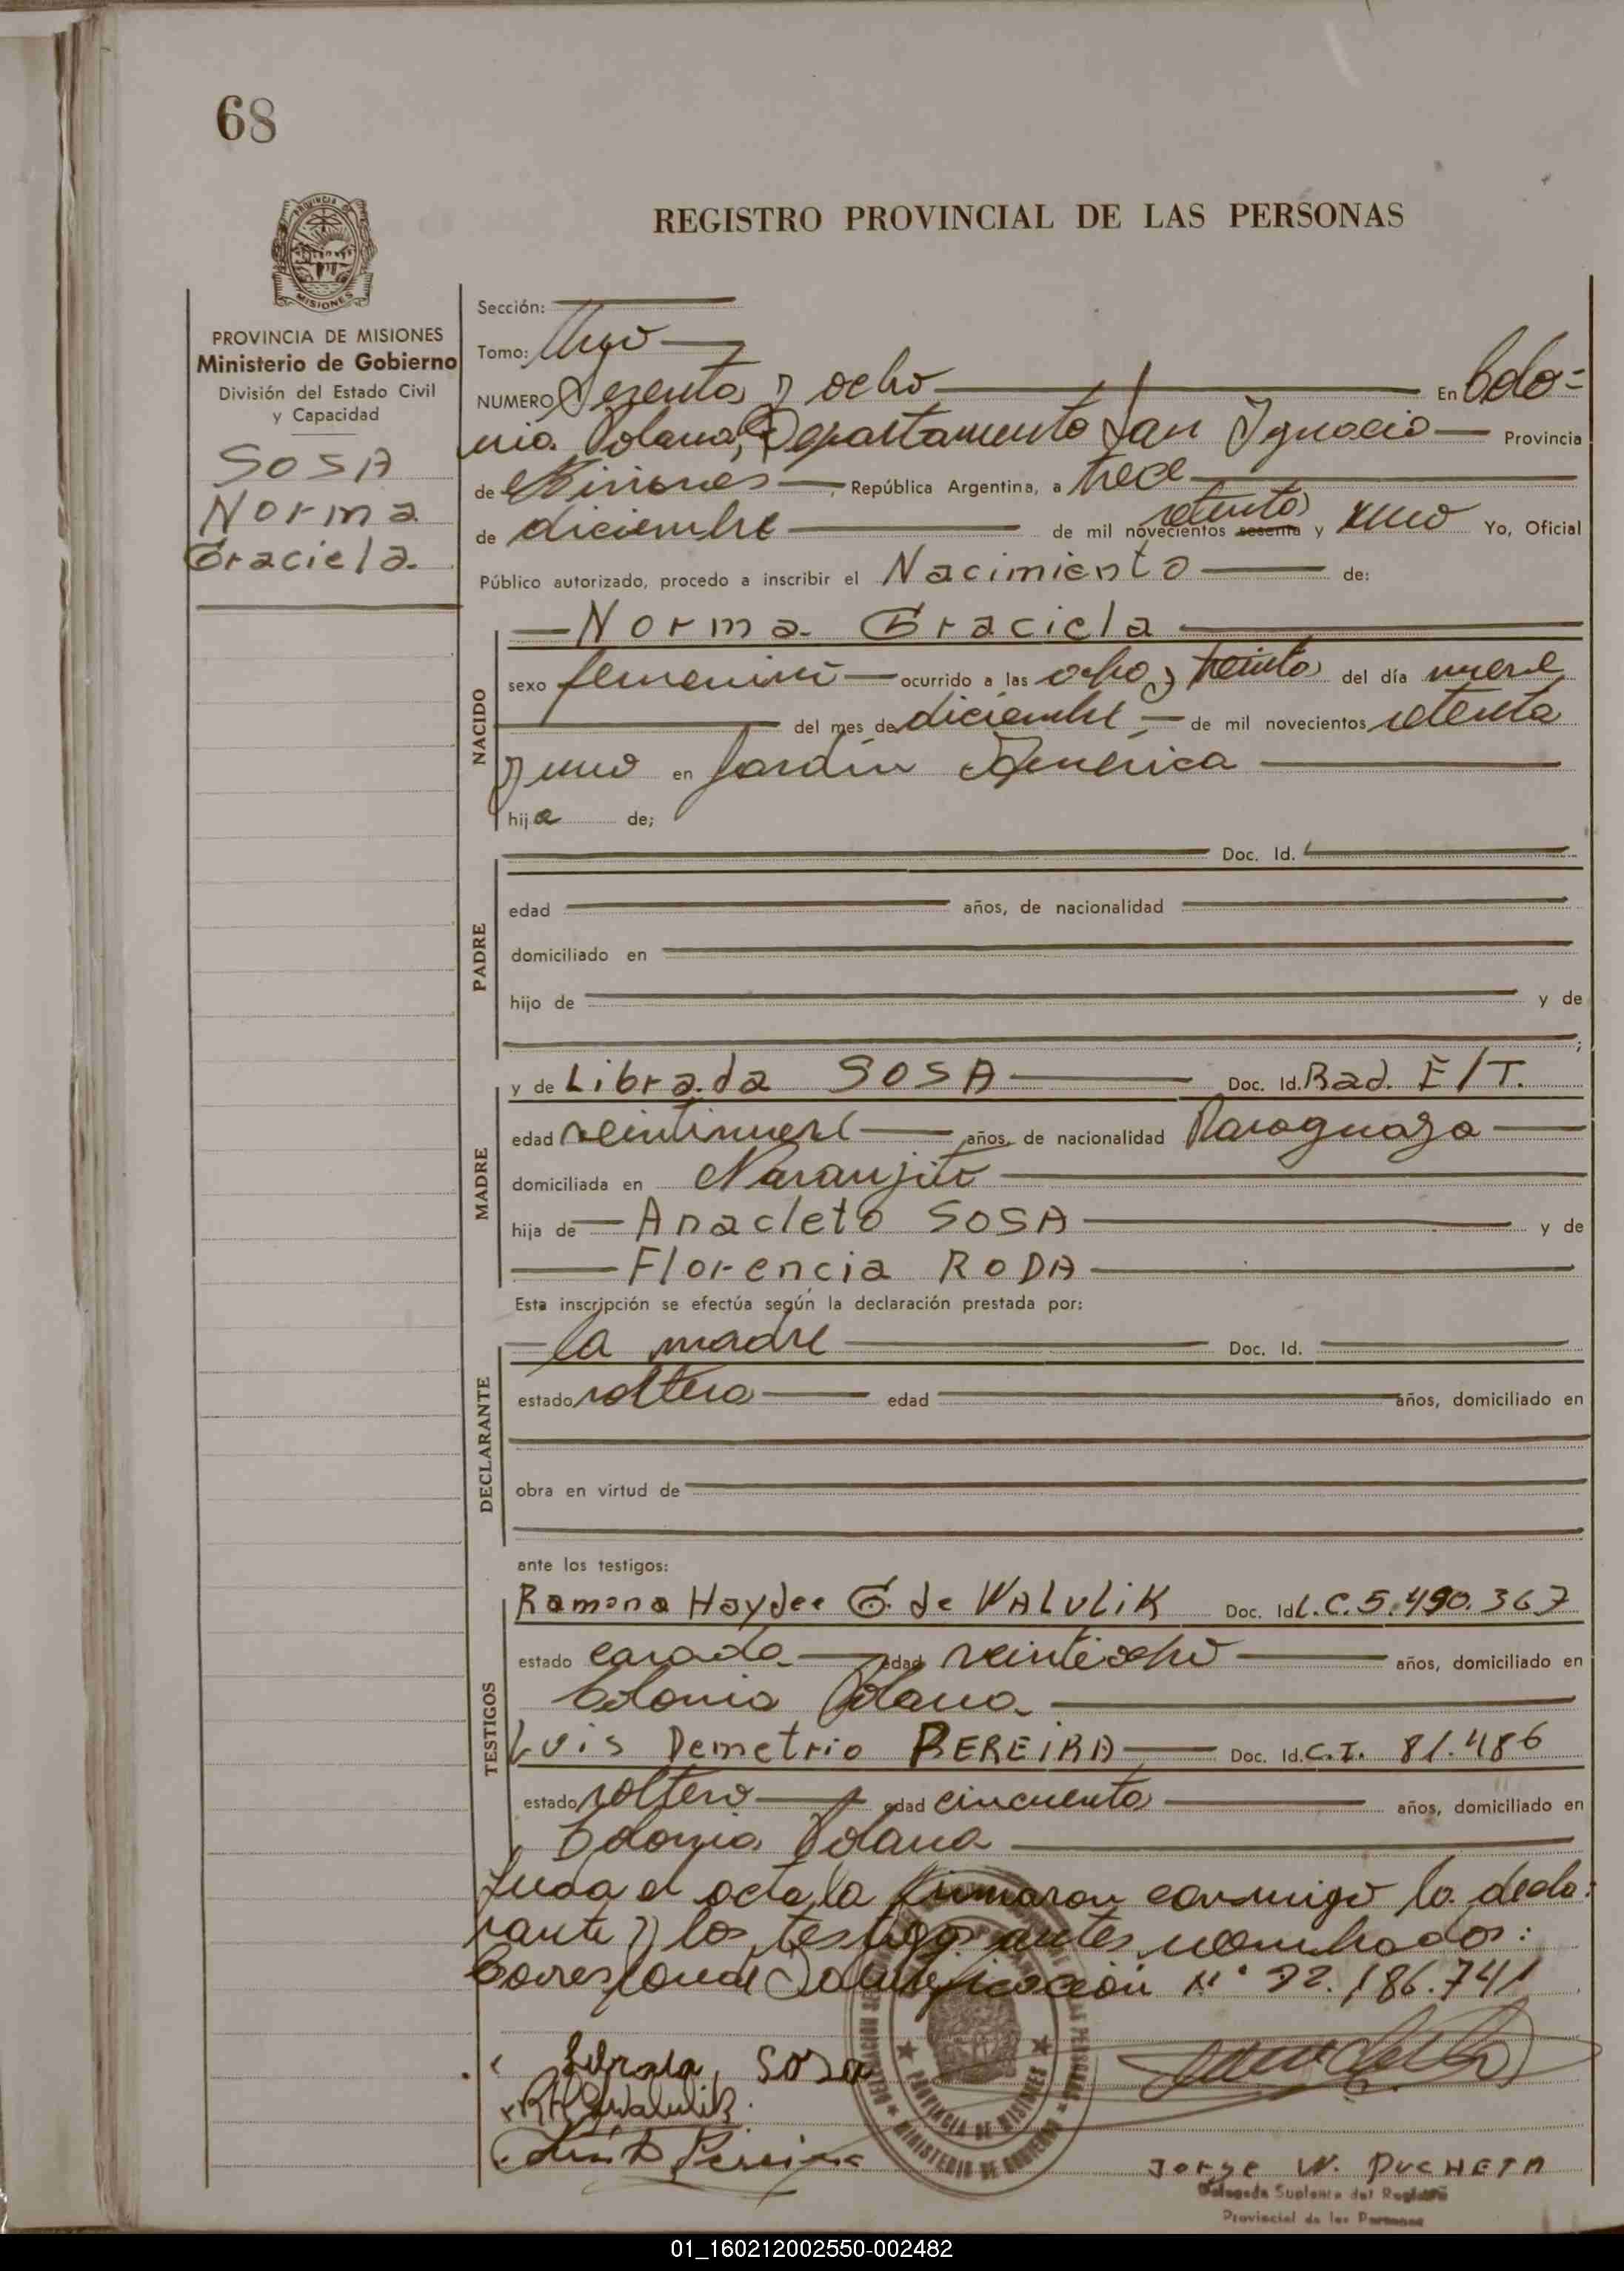 68
PROVINCIA DE
MISIONES
REGISTRO PROVINCIAL DE LAS PERSONAS
PROVINCIA DE MISIONES
Ministerio de Gobierno
División del Estado Civil
y Capacidad
SOSA
Norma
Graciela.
Sección:
Tomo: Uno
NUMERO Sesenta y ocho En Colo=
nia Polana, Departamento San Ignacio Provincia
de Misiones, República Argentina, a trece
de diciembre de mil novecientos sesenta setenta y uno Yo, Oficial
Público autorizado, procedo a inscribir el Nacimiento de:
NACIDO
Norma Graciela
sexo femenino ocurrido a las ocho y treinta del día nueve
del mes de diciembre de mil novecientos setenta
y uno en Jardín América
hija de;
PADRE
Doc. Id.
edad años, de nacionalidad
domiciliado en
hijo de y de
;
MADRE
y de Librada SOSA Doc. Id. Rad. E/T.
edad veintinueve años, de nacionalidad Paraguaya
domiciliada en Naranjito
hija de Anacleto SOSA y de
Florencia RODA
Esta inscripción se efectúa según la declaración prestada por:
DECLARANTE
la madre Doc. Id.
estado soltera edad años, domiciliado en
obra en virtud de
ante los testigos:
TESTIGOS
Ramona Haydee G. de WALULIK Doc. Id L.C. 5.490.367
estado casada edad veintiocho años, domiciliado en
Colonia Polana
Luis Demetrio PEREIRA Doc. Id. C.I. 81.486
estado soltero edad cincuenta años, domiciliado en
Colonia Polana
Leida el acta la firmaron conmigo la decla=
rante y los testigos antes nombrados:
Corresponde Identificación N° 22.186.741
Librada Sosa
RHG Walulik.
Luis D Pereira
PROVINCIA DE MISIONES
MINISTERIO DE GOBIERNO
Jorge W. PUCHETA
Delegado Suplente del Registro
Provincial de las Personas
01_160212002550-002482